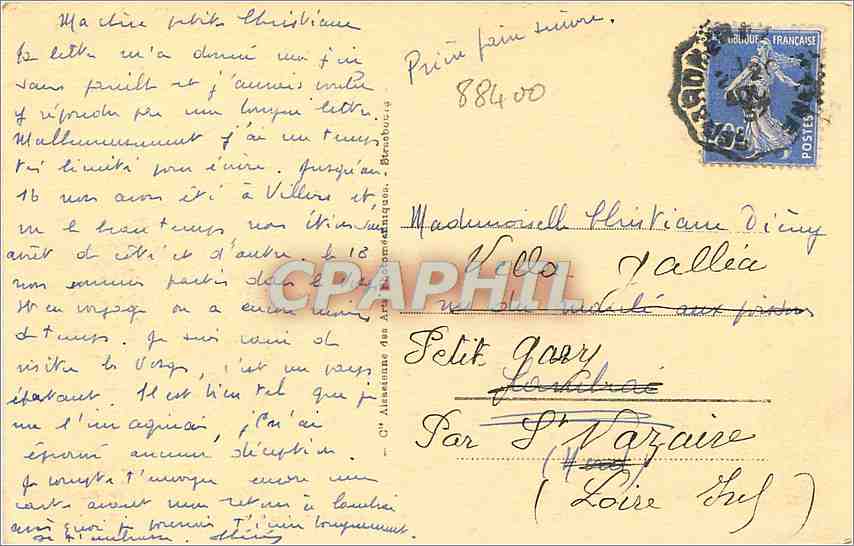 Ma chère petite Christiane
Ta lettre m'a donné une joie
sans pareille et j'aurais voulu
y répondre par une longue lettre.
Malheureusement j'ai un temps
très limité pour écrire. Jusqu'au
16 nous avons été à Villers et,
vu le beau temps nous étions sans
arrêt de côté et d'autre. Le 18
nous sommes partis dans les
et en voyage on a encore moins
de temps. Je suis ravi de
visiter les Vosges, c'est un pays
épatant. Il est bien tel que je
me l'imaginais, je n'ai
éprouvé aucune déception.
Je compte t'envoyer encore une
carte avant mon retour à Cambrai
après quoi je pourrai t'écrire longuement.
Je t'embrasse.
Cie Alsacienne des Arts Photomécaniques. - Strasbourg
Prière faire suivre.
88400
RÉPUBLIQUE FRANÇAISE
POSTES
Mademoiselle Christiane Diény
Villa
rue du marché aux poissons
Petit Gavy
Cambrai
Par St Nazaire
(Nord)
(Loire Inf)
CPAPHIL